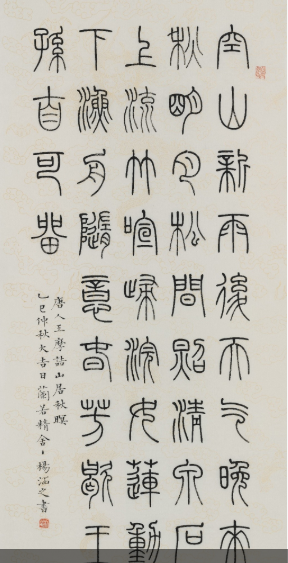 空山新雨後天气晚來
秋明月松間照清泉石
上流竹喧歸浣女蓮動
下漁舟隨意春芳歇王
孫自可留
唐人王摩詰山居秋暝
乙巳仲秋大吉日蘭若精舍丶楊涵之書